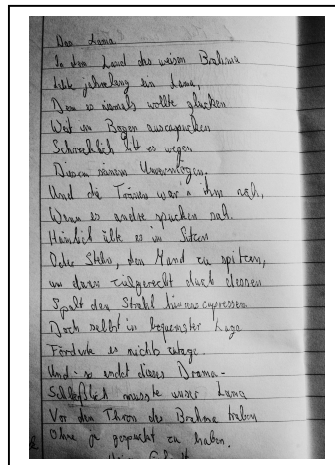 Das Lama
In dem Land des weisen Brahma
lebte jahrelang ein Lama,
Dem es niemals wollte glücken
Weit im Bogen auszuspucken
Schrecklich litt es wegen
Diesem seinem Unvermögen.
Und die Tränen war'n ihm nah,
Wenn es andre spucken sah.
Heimlich übte es im Sitzen
Oder Stehn, den Mund zu spitzen,
um dann zielgerecht durch diesen
Spalt den Strahl hinauszupressen
Doch selbst in bequemster Lage
Förderte es nichts zutage.
Und so endet dieses Drama -
Schließlich musste unser Lama
Vor den Thron des Brahma traben
Ohne je gespuckt zu haben.